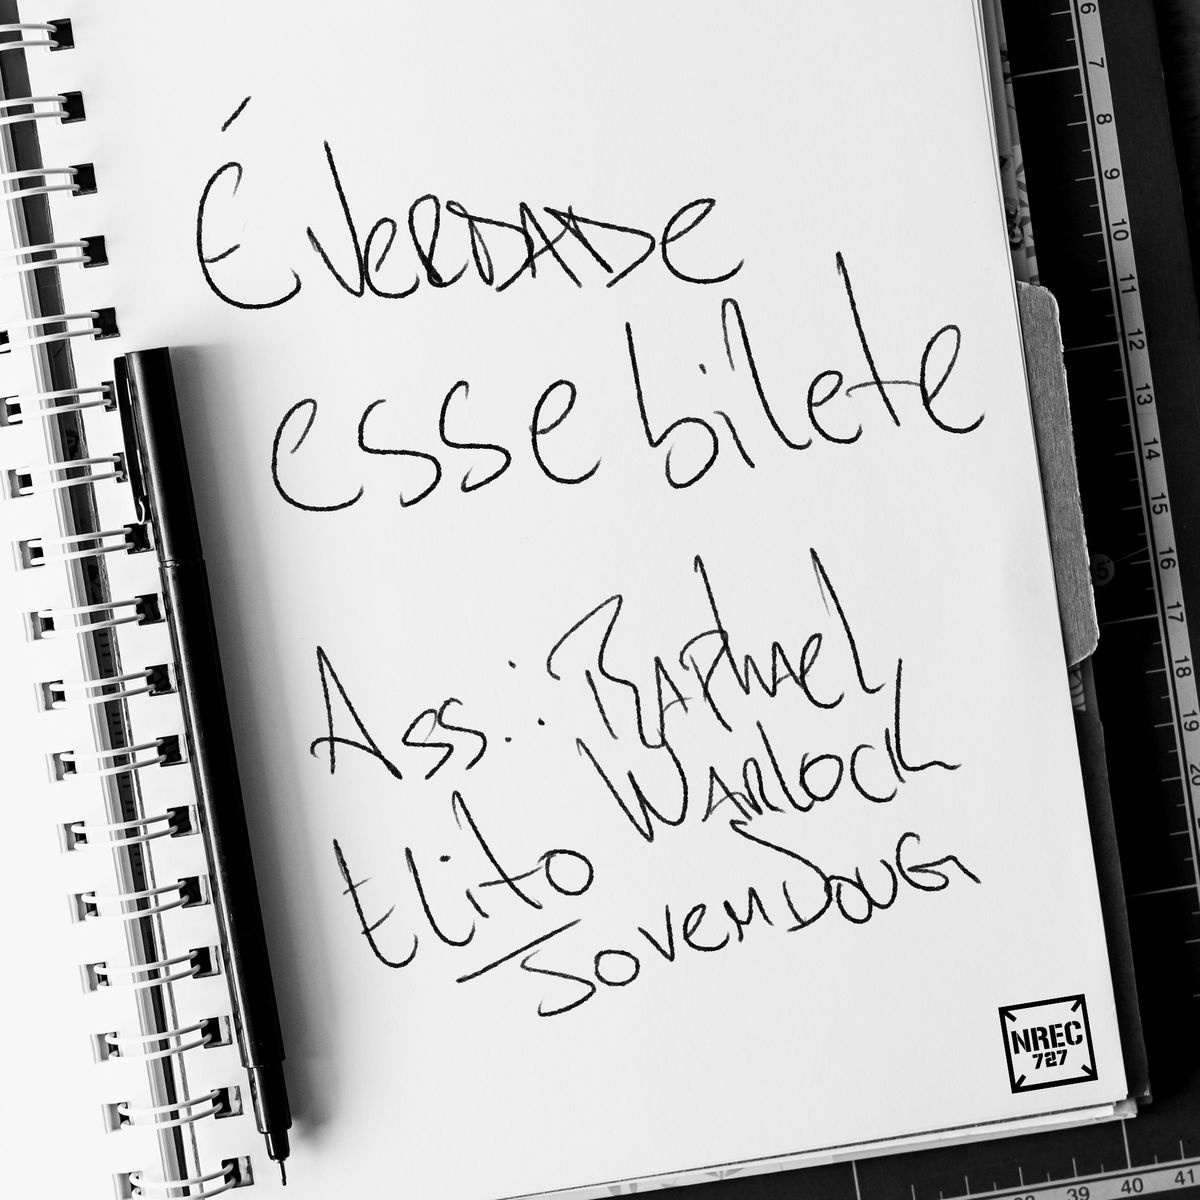 É VERDADE
esse bilete
Ass.: RAPHAEL
WARLOCK
Elito
JOVEM DOUG
NREC
727
6
7
8
9
10
11
12
13
14
15
16
17
18
19
20
5
39
40
41